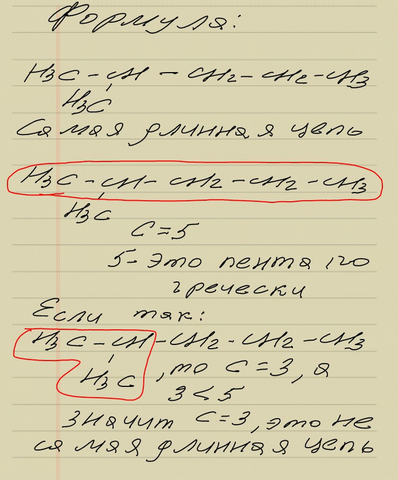 Формула:
H3C - CH - CH2 - CH2 - CH3
H3C
Самая длинная цепь
H3C - CH - CH2 - CH2 - CH3
H3C
C = 5
5 - это пента по
гречески
Если так:
H3C - CH - CH2 - CH2 - CH3
H3C , то C = 3, а
3 < 5
Значит C = 3, это не
самая длинная цепь